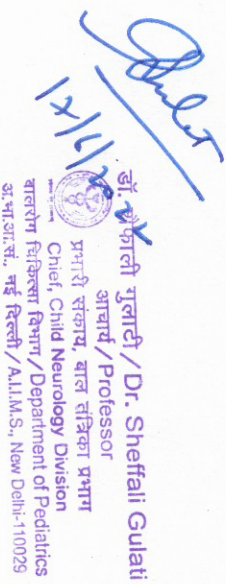 17/6/2024
डॉ. शैफाली गुलाटी / Dr. Sheffali Gulati
आचार्य / Professor
प्रभारी संकाय, बाल तंत्रिका प्रभाग
Chief, Child Neurology Division
बालरोग चिकित्सा विभाग / Department of Pediatrics
अ.भा.आ.सं., नई दिल्ली / A.I.I.M.S., New Delhi-110029